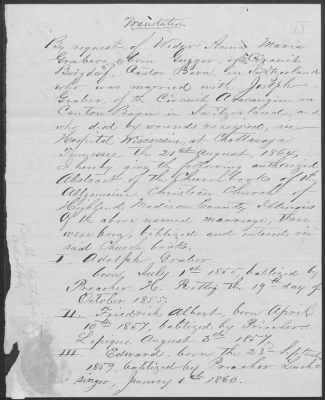 Translation
By request of Widow Anna Maria
Graber, born Gugger, of Circuit
Burgdorf, Canton Bern, in Switzerland
who was married with Joseph
Graber, of the Circuit Aarwangen in
Canton Bern in Switzerland, and
who died by wounds received, in
Hospital, Wisconsin, at Chattanoga
Tennessee the 21st August, 1864,
I hereby give the following authorized
Abstract of the Church books of 1st
Allgemeine Christian Church of
Highland Madison County Illinois
Of the above named marriage, there
were born, babtized and entered in
said Church books.
I. Adolph Graber
born, July 1st 1855, babtized by
Preacher H. the 19th day of
October 1855.
II. Friedrich Albert, born April
10th 1857, babtized by Preacher
August 1857.
III Edward, born the 23d Septemb
1859 babtized by Preacher
singer, January 1860.